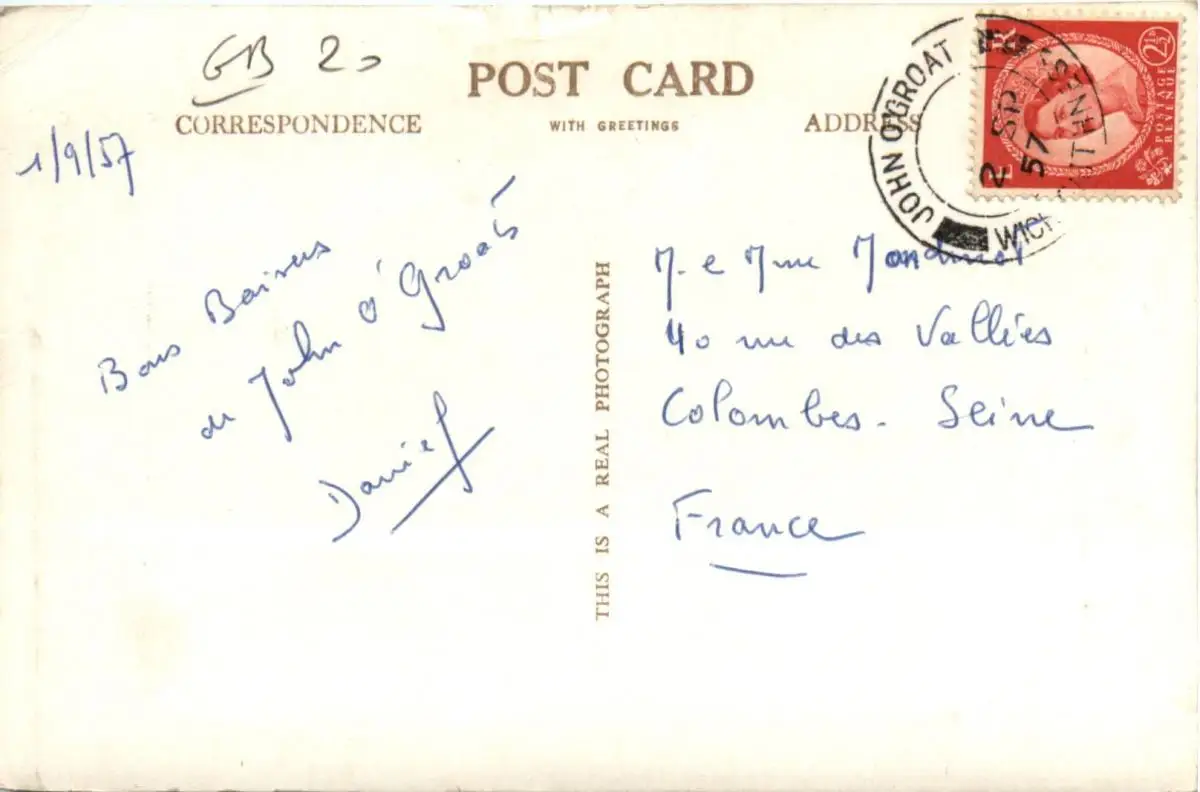 GB 20
POST CARD
CORRESPONDENCE
WITH GREETINGS
ADDRESS
JOHN O'GROAT
WICK CAITHNESS
2 SP
57
2½D
POSTAGE
REVENUE
1/9/57
Bons Baisers
de John O'Groats
Daniel
THIS IS A REAL PHOTOGRAPH
M. e Mme
40 rue des Vallées
Colombes. Seine
France